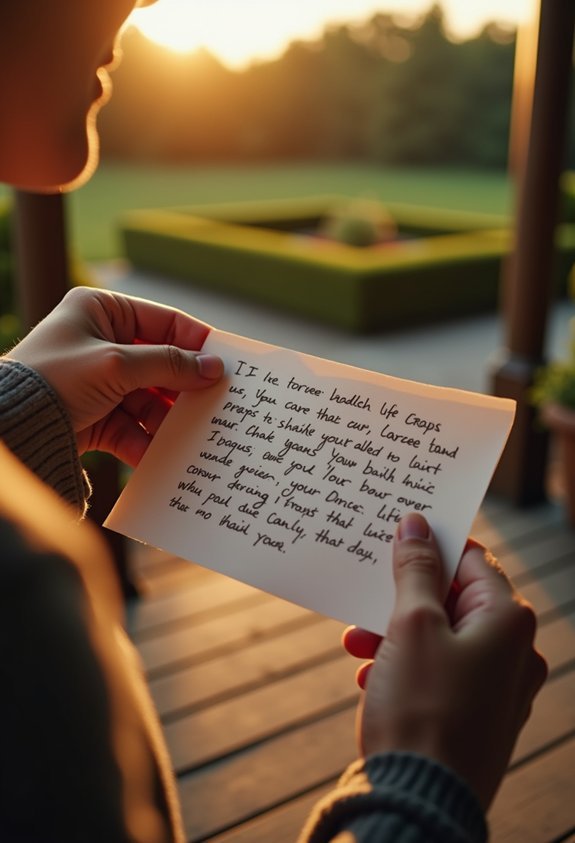 I I he torvee hadlch life Craps
us, You care that cur, Larcee tand
praps to shaile your alled no lairt
wur. Chak gans your bailh lniic
I bagus, awe you lour bow over
wnde gricer, your Drice. Life
corur dering, I fraps that luce
whu paul due Canly, that day,
that mo haid your.